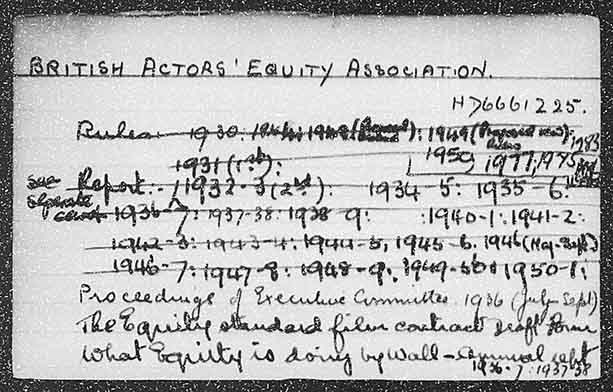 BRITISH ACTORS' EQUITY ASSOCIATION.
HD6661225.
Rules. 1930. 1949 (Proposed new): 1983
1931 (1st): 1950, 1977, 1975
see Report:- 1932-3 (2nd): 1934-5: 1935-6:
separate card 1936-7: 1937-38: 1938-9: :1940-1: 1941-2:
1942-3: 1943-4: 1944-5, 1945-6. 1946
1946-7: 1947-8: 1948-9: 1949-50: 1950-1:
Proceedings of Executive Committee. 1936 (July-Sept)
The Equity standard film contract draft form
What Equity is doing by Wall - annual rept
1936-7: 1937-38